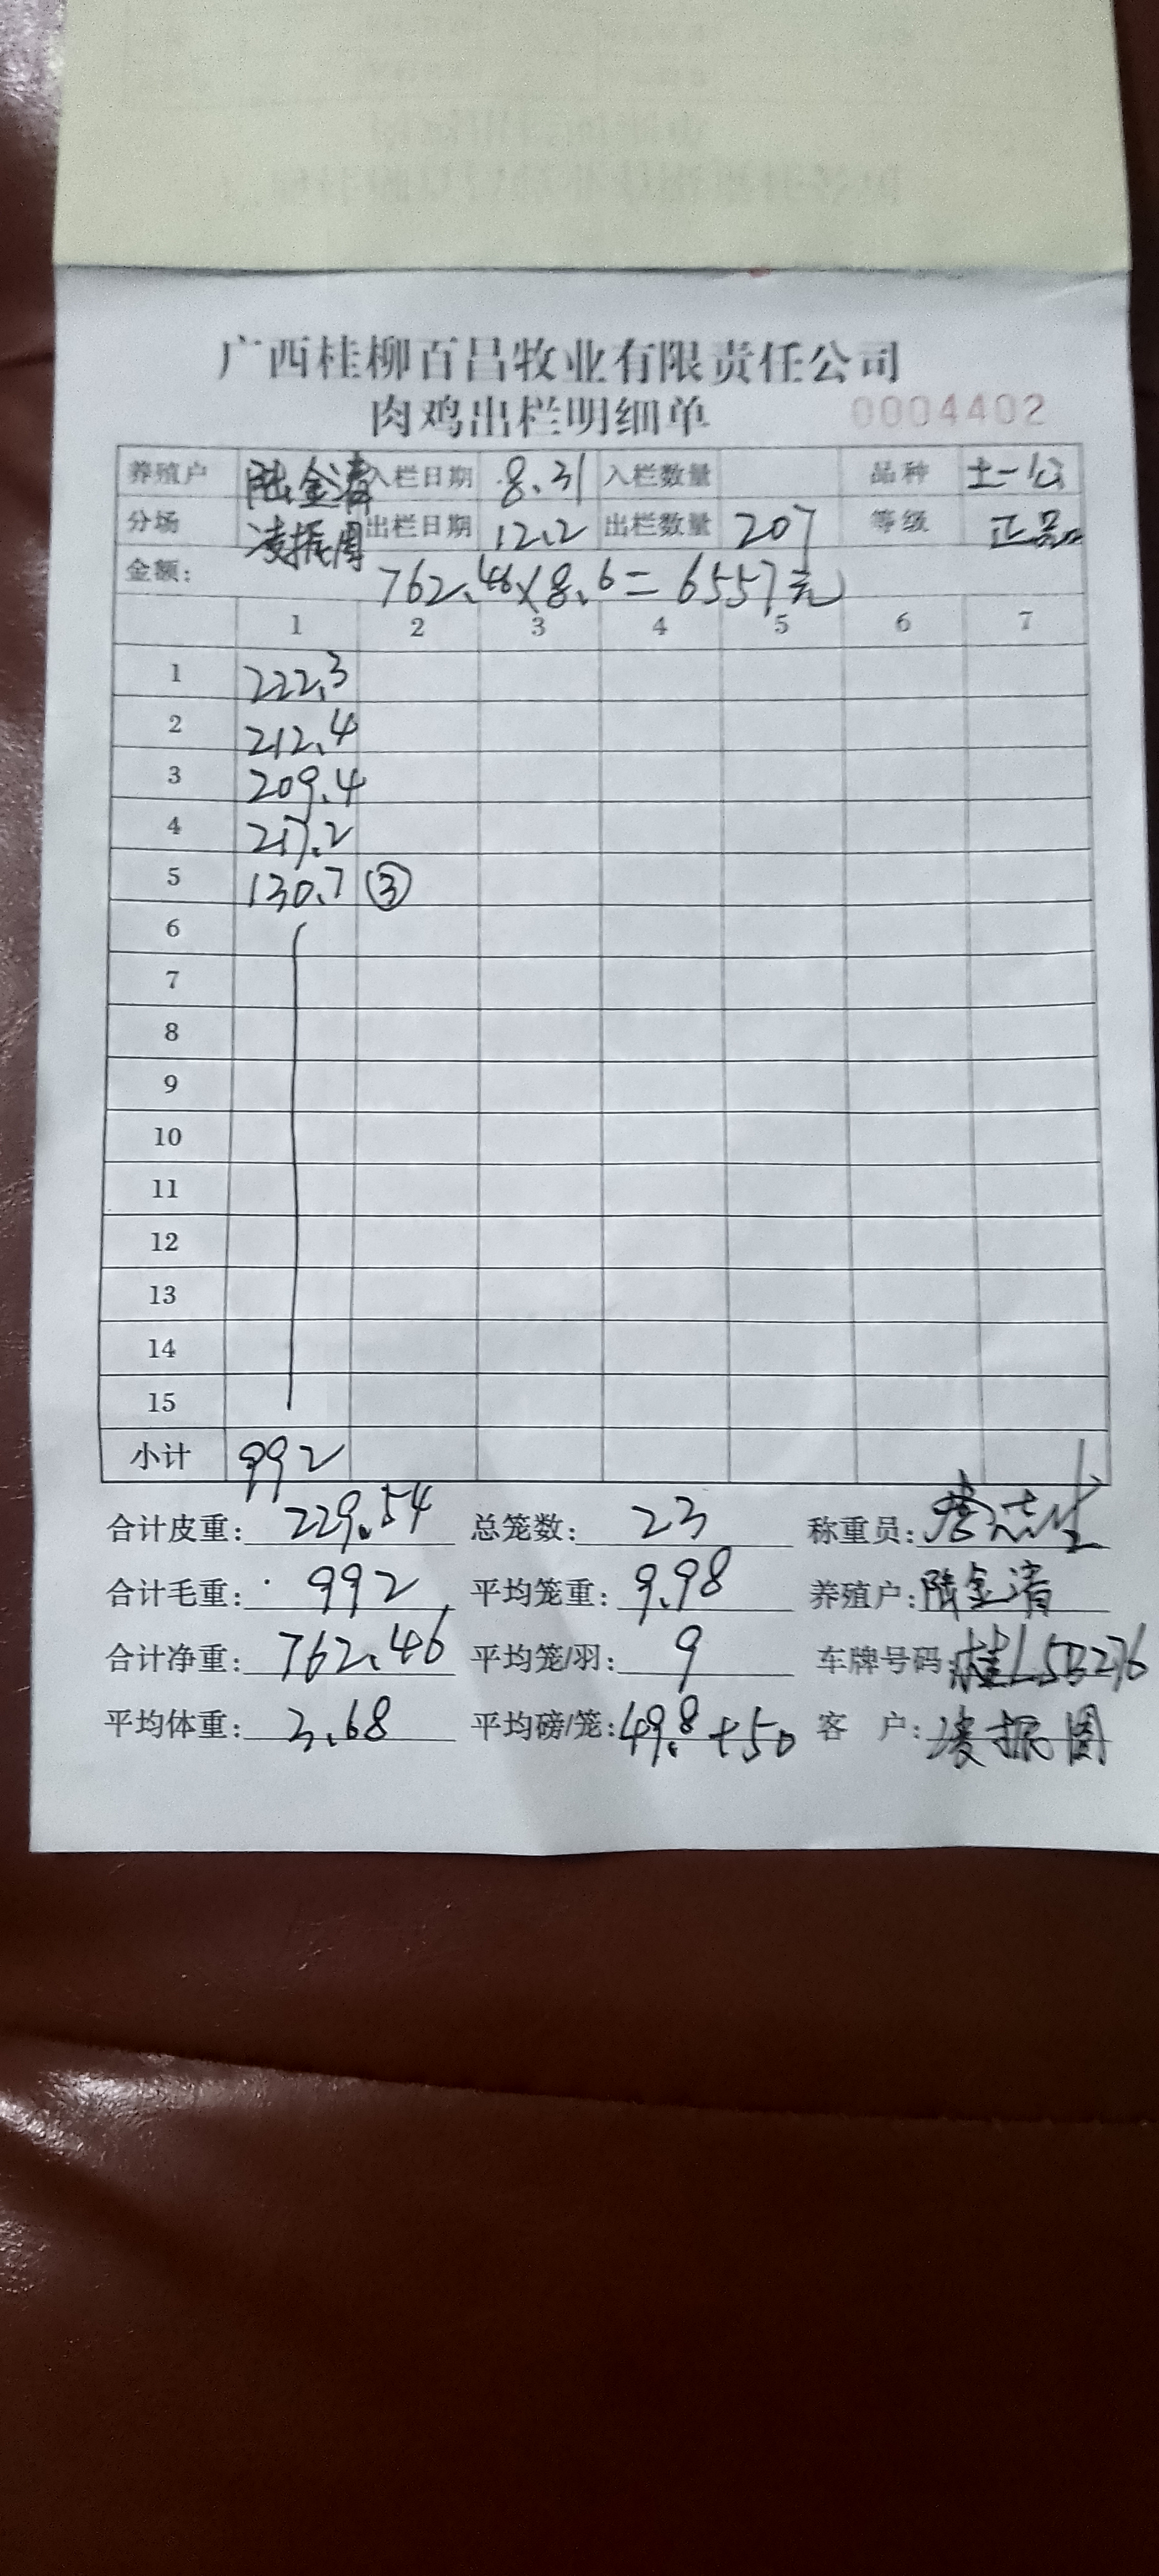 广西桂柳百昌牧业有限责任公司
肉鸡出栏明细单 0004402
养殖户 陆金清 入栏日期 8.31 入栏数量 品种 土一公
分场 凌振图 出栏日期 12.2 出栏数量 207 等级 正品
金额: 762.46×8.6=6557元
1 2 3 4 5 6 7
1 222.3
2 212.4
3 209.4
4 217.2
5 130.7 ③
6
7
8
9
10
11
12
13
14
15
小计 992
合计皮重: 229.54 总笼数: 23 称重员:
合计毛重: 992 平均笼重: 9.98 养殖户: 陆金清
合计净重: 762.46 平均笼/羽: 9 车牌号码: 桂L5B276
平均体重: 3.68 平均磅/笼: 49.8+50 客 户: 凌振图